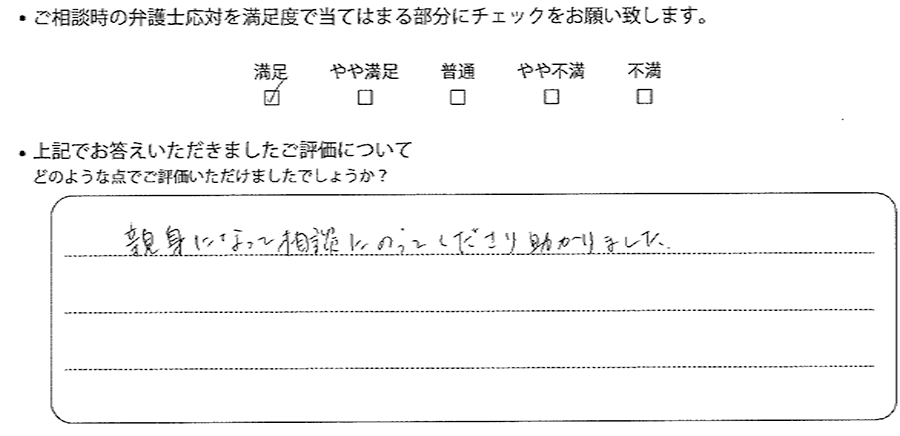 • ご相談時の弁護士応対を満足度で当てはまる部分にチェックをお願い致します。
満足 やや満足 普通 やや不満 不満
☑ □ □ □ □
• 上記でお答えいただきましたご評価について
どのような点でご評価いただけましたでしょうか?
親身になって相談にのってくださり助かりました。